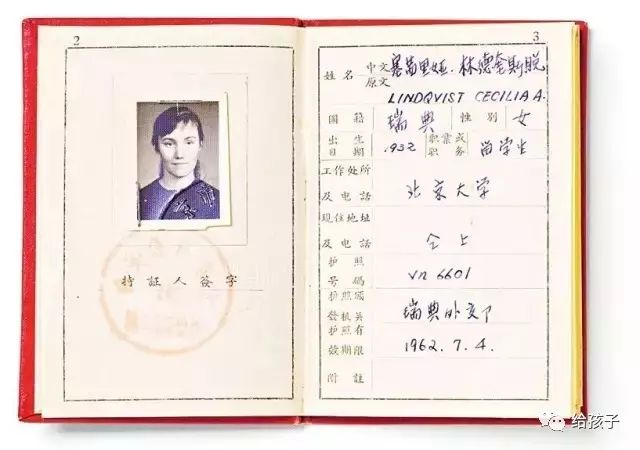 2
持証人簽字
3
姓名 中文 塞茜里娅·林德奎斯脱
原文 LINDQVIST CECILIA A.
国籍 瑞典 性别 女
出生日期 1932 职業或职务 留学生
工作处所及电話 北京大学
现住地址及电話 仝上
护照号碼 VN 6601
护照頒發机关 瑞典外交部
护照有效期限 1962.7.4.
附註
给孩子